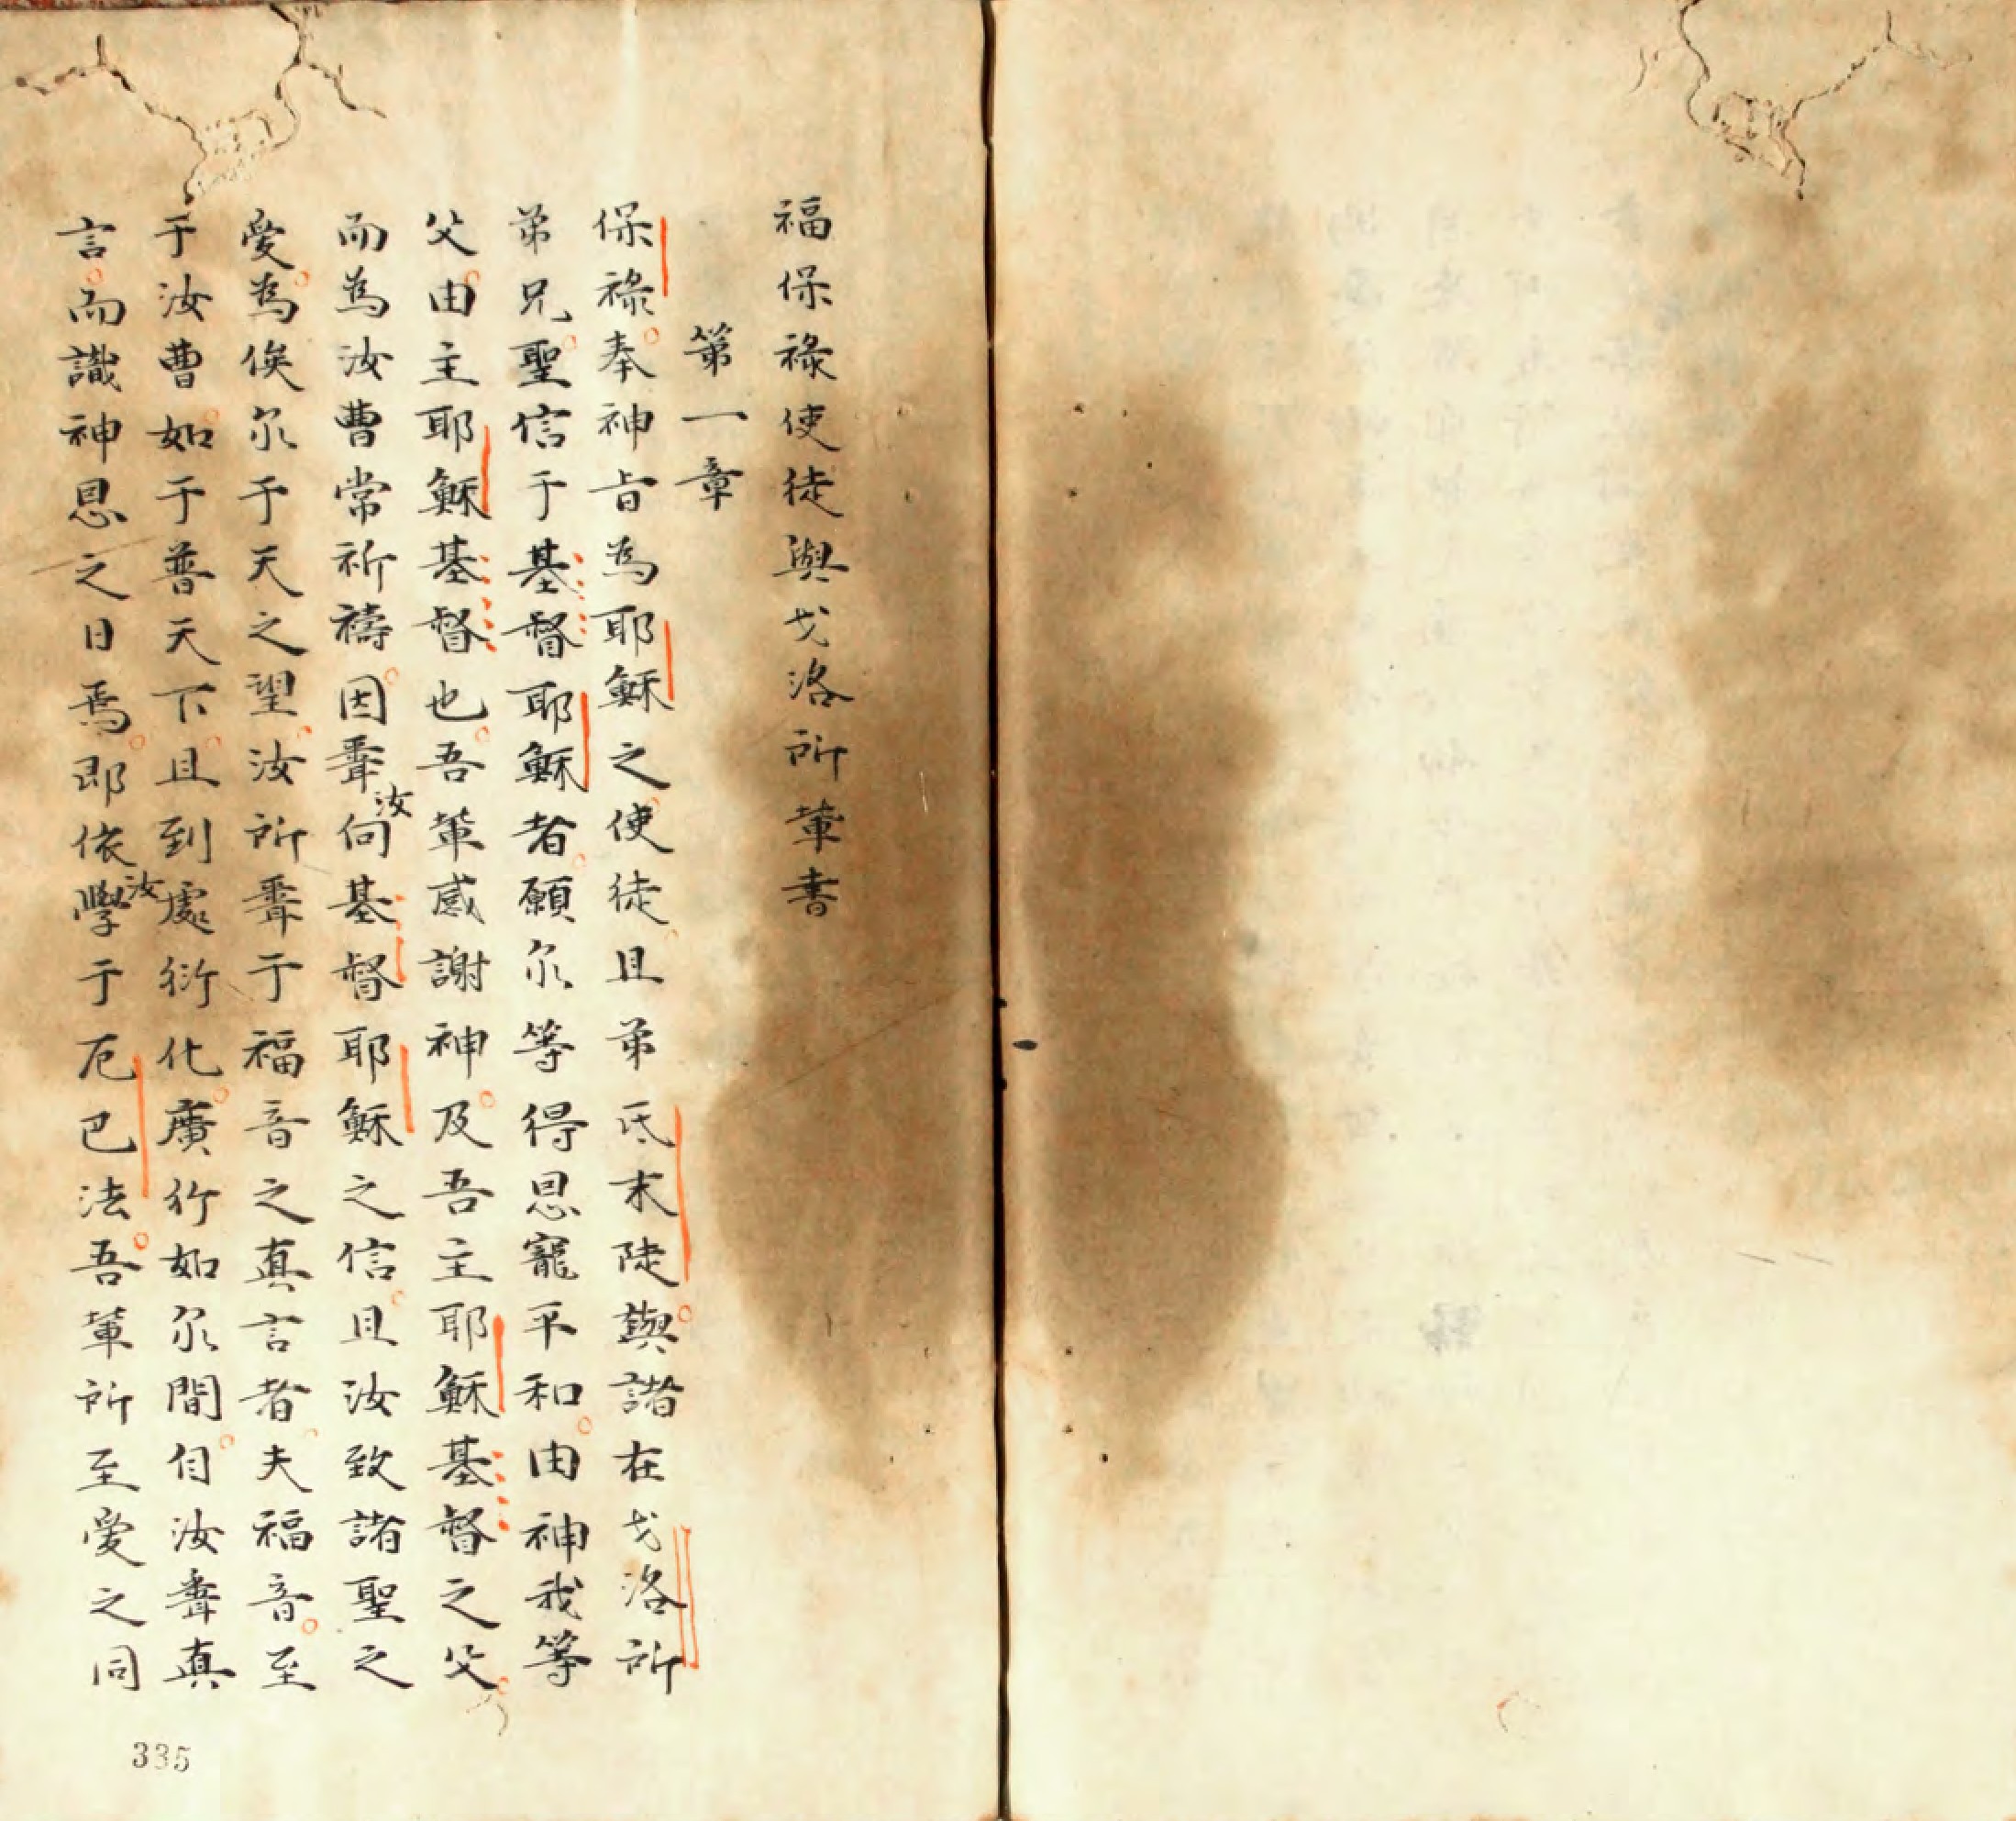 福保祿使徒與戈洛所輩書
第一章
保祿奉神旨為耶穌之使徒且弟氐末陡與諸在戈洛所
弟兄聖信于基督耶穌者願尔等得恩寵平和由神我等
父由主耶穌基督也吾輩感謝神及吾主耶穌基督之父
而為汝曹常祈禱因聞汝向基督耶穌之信且汝致諸聖之
愛為俟尔于天之望汝所聞于福音之真言者夫福音至
于汝曹如于普天下且到處衍化廣行如尔間自汝聞真
言而識神恩之日焉即依汝學于厄巴法吾輩所至愛之同
335